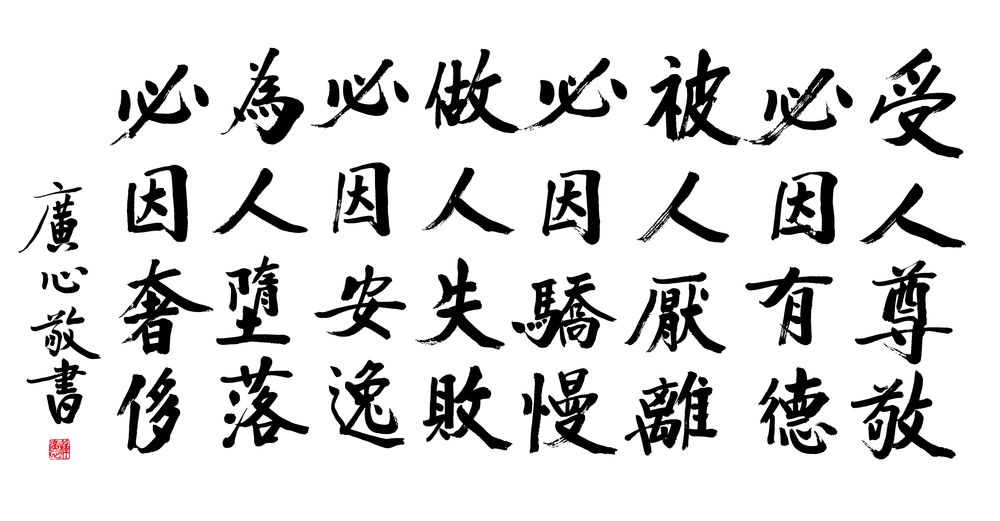 受人尊敬
必因有德
被人厭離
必因驕慢
做人失敗
必因安逸
為人墮落
必因奢侈
廣心敬書